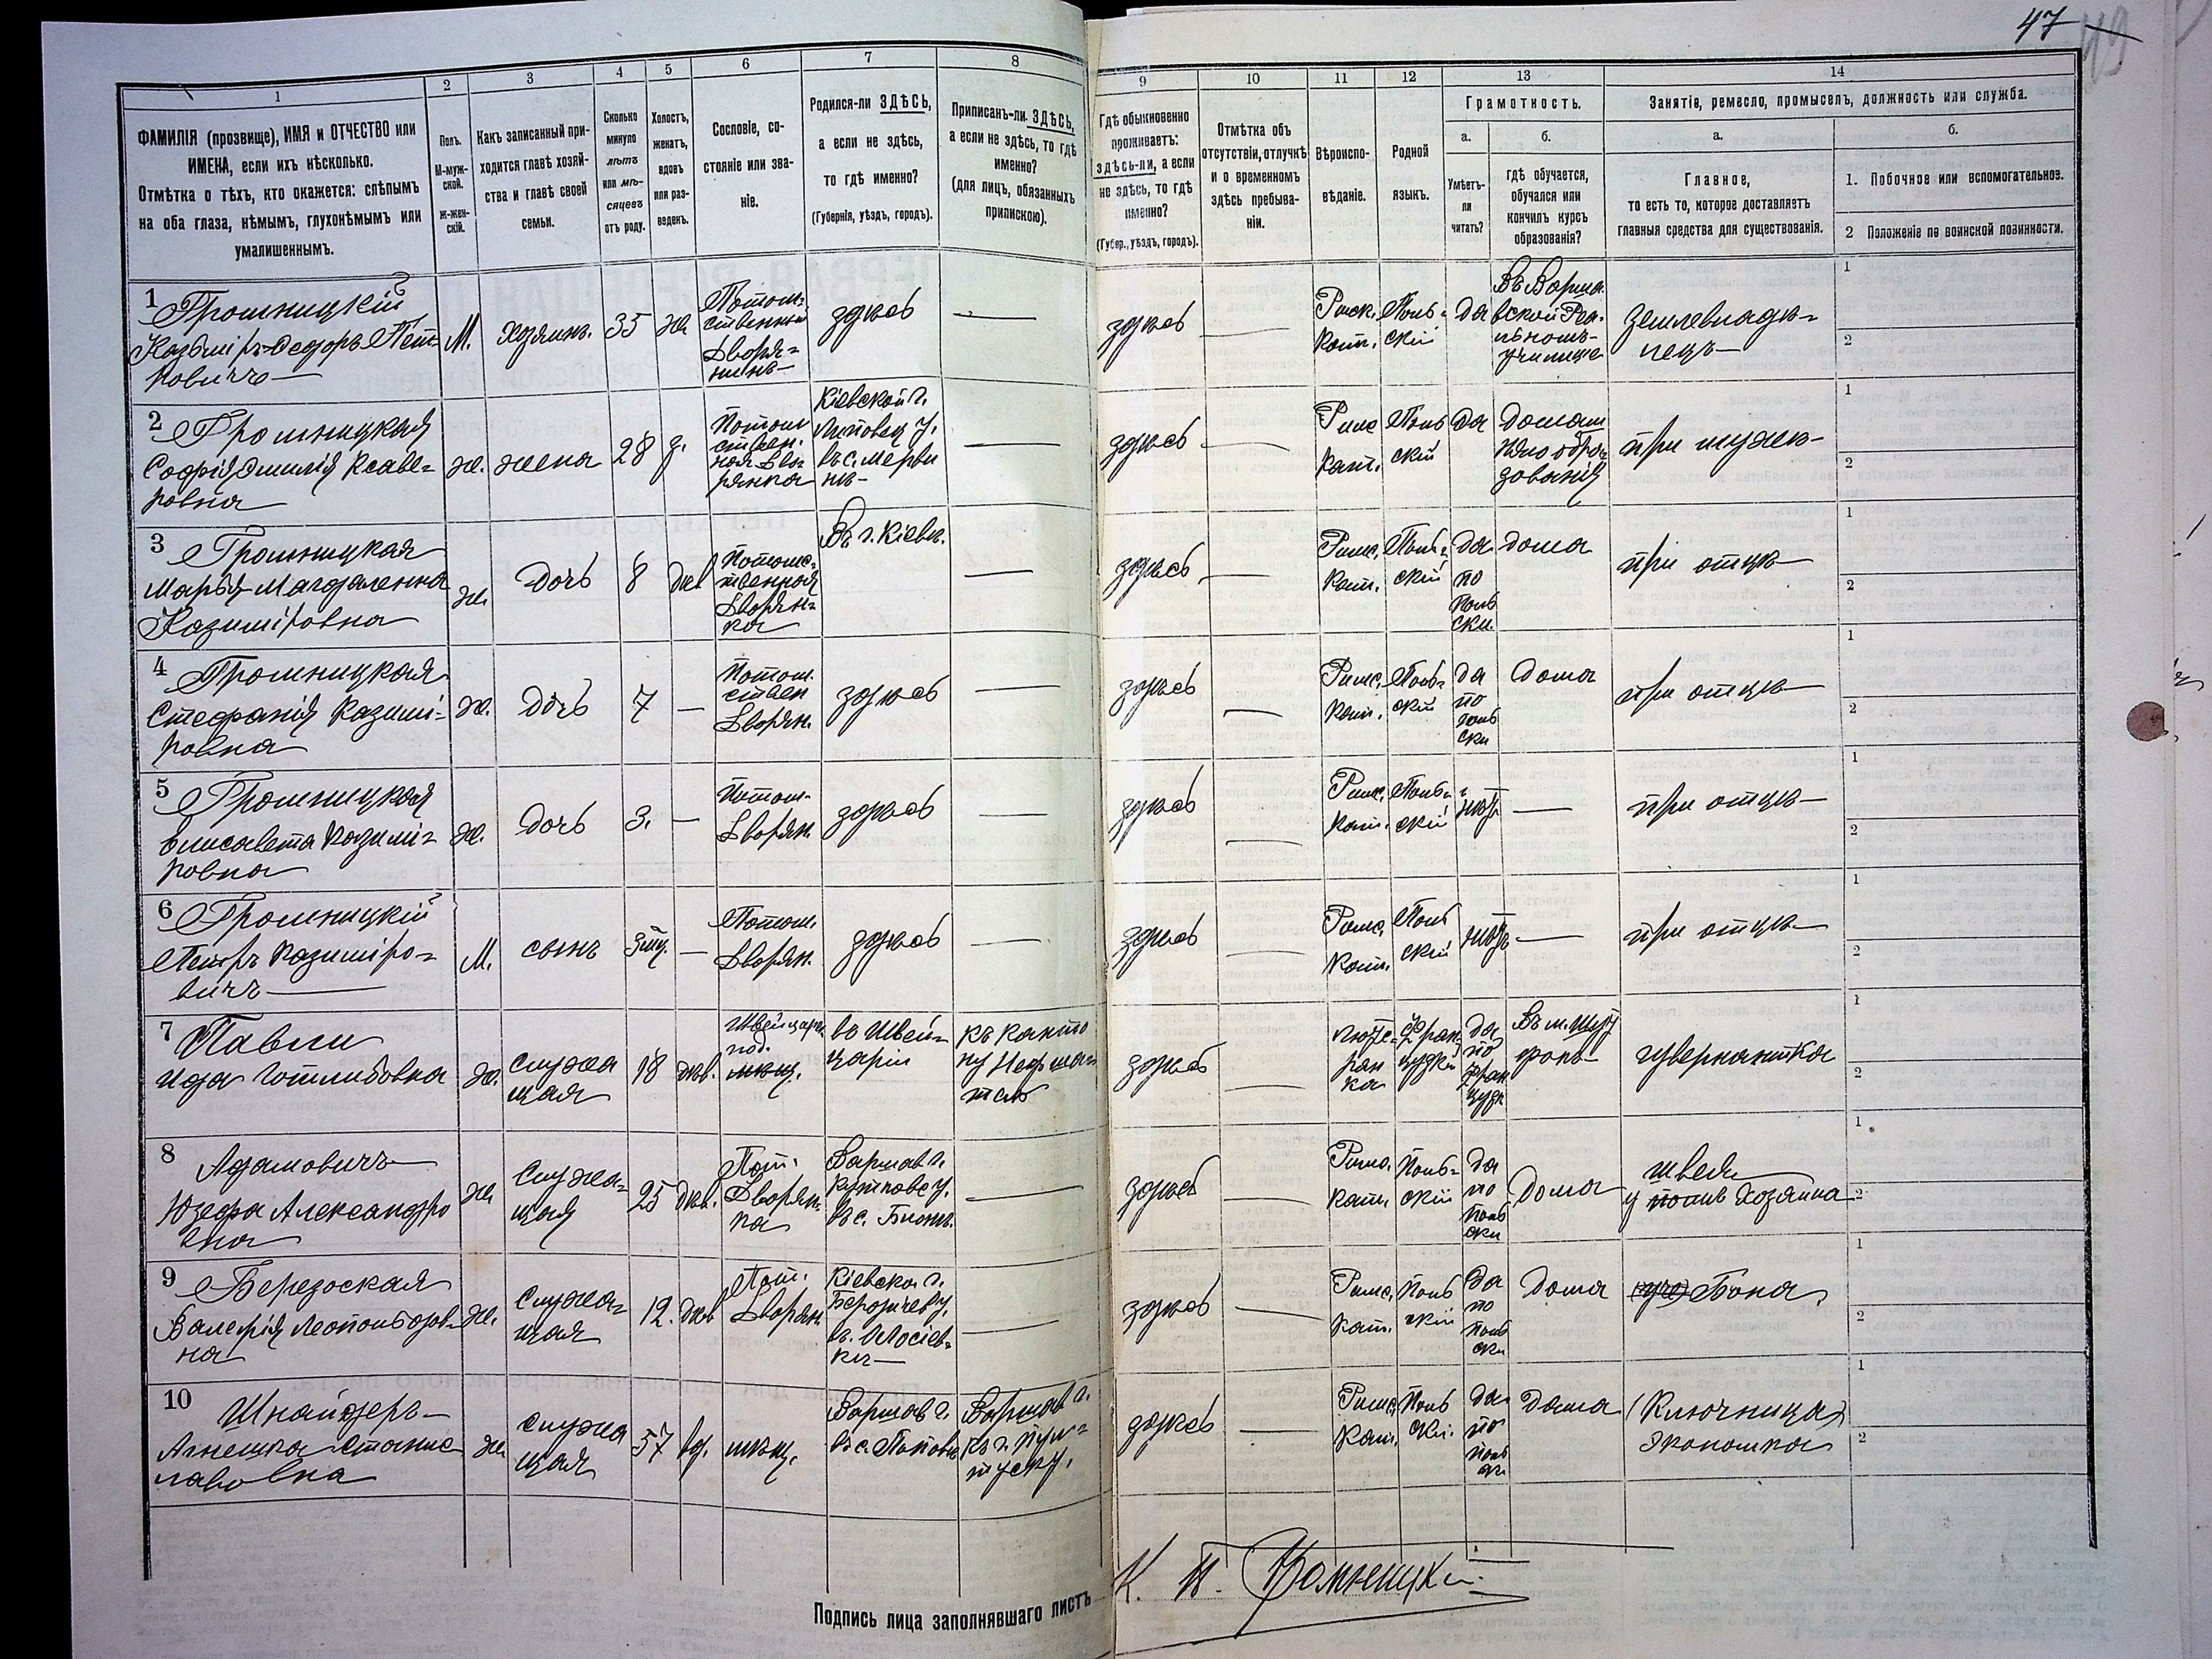 47
49
1
2
3
4
5
6
7
8
9
10
11
12
13
14
ФАМИЛІЯ (прозвище), ИМЯ и ОТЧЕСТВО или
ИМЕНА, если ихъ нѣсколько.
Отмѣтка о тѣхъ, кто окажется: слѣпымъ
на оба глаза, нѣмымъ, глухонѣмымъ или
умалишеннымъ.
Полъ.
М-муж-
ской.
Ж-жен-
скій.
Какъ записанный при-
ходится главѣ хозяй-
ства и главѣ своей
семьи.
Сколько
минуло
лѣтъ
или мѣ-
сяцевъ
отъ роду.
Холостъ,
женатъ,
вдовъ
или раз-
веденъ.
Сословіе, со-
стояніе или зва-
ніе.
Родился-ли ЗДѢСЬ,
а если не здѣсь,
то гдѣ именно?
(Губернія, уѣздъ, городъ).
Приписанъ-ли ЗДѢСЬ,
а если не здѣсь, то гдѣ
именно?
(для лицъ, обязанныхъ
припискою).
Гдѣ обыкновенно
проживаетъ:
здѣсь-ли, а если
не здѣсь, то гдѣ
именно?
(Губер., уѣздъ, городъ).
Отмѣтка объ
отсутствіи, отлучкѣ
и о временномъ
здѣсь пребыва-
ніи.
Вѣроиспо-
вѣданіе.
Родной
языкъ.
Грамотность.
а.
Умѣетъ-
ли
читать?
б.
гдѣ обучается,
обучался или
кончилъ курсъ
образованія?
Занятіе, ремесло, промыселъ, должность или служба.
а.
Главное,
то есть то, которое доставляетъ
главныя средства для существованія.
б.
1. Побочное или вспомогательное.
2 Положеніе по воинской повинности.
1 Громницкій
Казиміръ-Ѳеодоръ Пет-
ровичъ
М.
хозяинъ.
35
ж.
Потом-
ственный
Дворя-
нинъ
здѣсь
здѣсь
Римск. Кат.
Поль-
скій
да
Въ Варша
вской Реа-
льномъ
училище
Землевладѣ-
лецъ
1
2
2 Громницкая
Софія Эмилія Ксаве-
ровна
ж.
жена
28
з.
Потом
ствен-
ная Дво-
рянка
Кіевской г.
Липовец у.
въ с. Мерви
нѣ
здѣсь
Римс Кат.
Поль
скій
да
домаш
няго обра
зованія
при мужѣ
1
2
3 Громницкая
Марья-Магдалена
Казиміровна
ж.
дочь
8
дѣв
Потомс-
твенная
Дворян-
ка
Въ г. Кіевѣ.
здѣсь
Римс. Кат.
Поль-
скій
да
по
поль
ски.
дома
при отцѣ
1
2
4 Громницкая
Стефанія Казимі-
ровна
ж.
дочь
7
Потом.
ствен
Дворян.
здѣсь
здѣсь
Римс. Кат.
Поль-
скій
да
по
поль
ски
Дома
при отцѣ
1
2
5 Громницкая
Елисавета Казимі-
ровна
ж.
дочь
3.
Потом.
Дворян.
здѣсь
здѣсь
Римс. Кат.
Поль-
скій
нѣтъ
при отцѣ
1
2
6 Громницкій
Петръ Казиміро-
вичъ
М.
сынъ
Потом.
Дворян.
здѣсь
здѣсь
Римс. Кат.
Поль
скій
нѣтъ
при отцѣ
1
2
7 Павли
Ида Готлибовна
ж.
служа
щая
18
дѣв.
Швейцарс.
под.
мѣщ.
въ Швей-
царіи
къ Канто
ну Нефша-
тель
здѣсь
люте-
ран
ка
Фран-
цузкій
да
по
фран
цузк
гувернантка
1
2
8 Адамовичъ
Юзефа Александро
вна
ж.
служа-
щая
25
дѣв.
Пот.
Дворян-
ка
Варшав г.
Кутнове у.
здѣсь
Римс. Кат.
Поль-
скій
да
по
поль
ски
Дома
швея
у хозяина
1
2
9 Березоская
Валерія Леопольдов-
на
ж.
служа-
щая
12.
дѣв
Пот.
Дворян.
Кіевско. г.
Бердичев у.
здѣсь
Римс. Кат.
Поль
скій
да
по
поль
ски
Дома
Бона.
1
2
10 Шнайдеръ
Агнешка Станис
лавовна
ж.
служа
щая
57
вд.
мѣщ.
Варшав г.
въ с. Поповѣ
Варшав г.
къ г. Пул-
туску.
здѣсь
Римс. Кат.
Поль
скі.
да
по
поль
ски
Дома
(Ключница)
экономка
1
2
Подпись лица заполнявшаго листъ
К. П. Громницкій